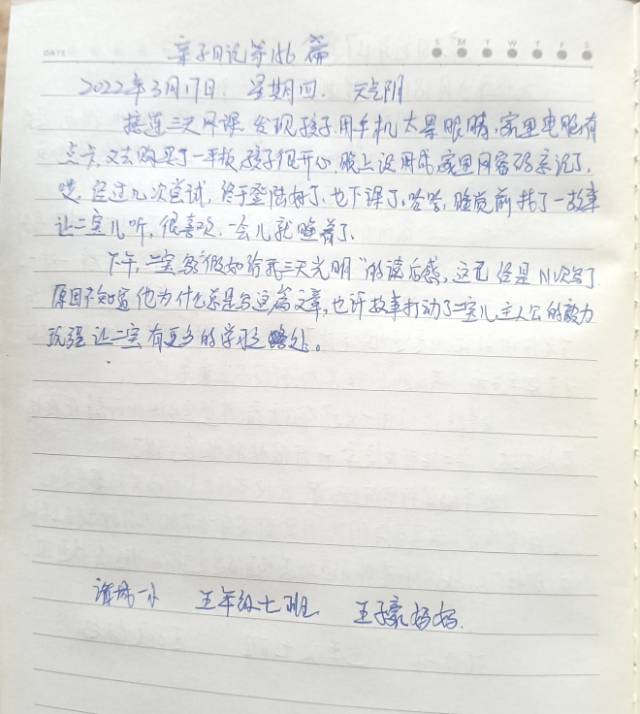 DATE S M T W T F S
亲子日记第156篇
2022年3月17日 星期四 天气阴
接连三天网课,发现孩子用手机太累眼睛,家里电脑有
点卡,又去购买了一平板,孩子很开心,晚上设用成,家里网密码忘记了,
哎,经过几次尝试,终于登陆好了,也下课了,哈哈,睡觉前找了一故事
让二宝儿听,很喜欢,一会儿就睡着了、
下午,二宝写“假如给我三天光明”的读后感,这已经是N次写了
原因不知道他为什么总是写这篇文章,也许故事打动了二宝儿主人公的毅力
顽强让二宝有更多的学习之处。
诸城一小 五年级七班 王子豪妈妈